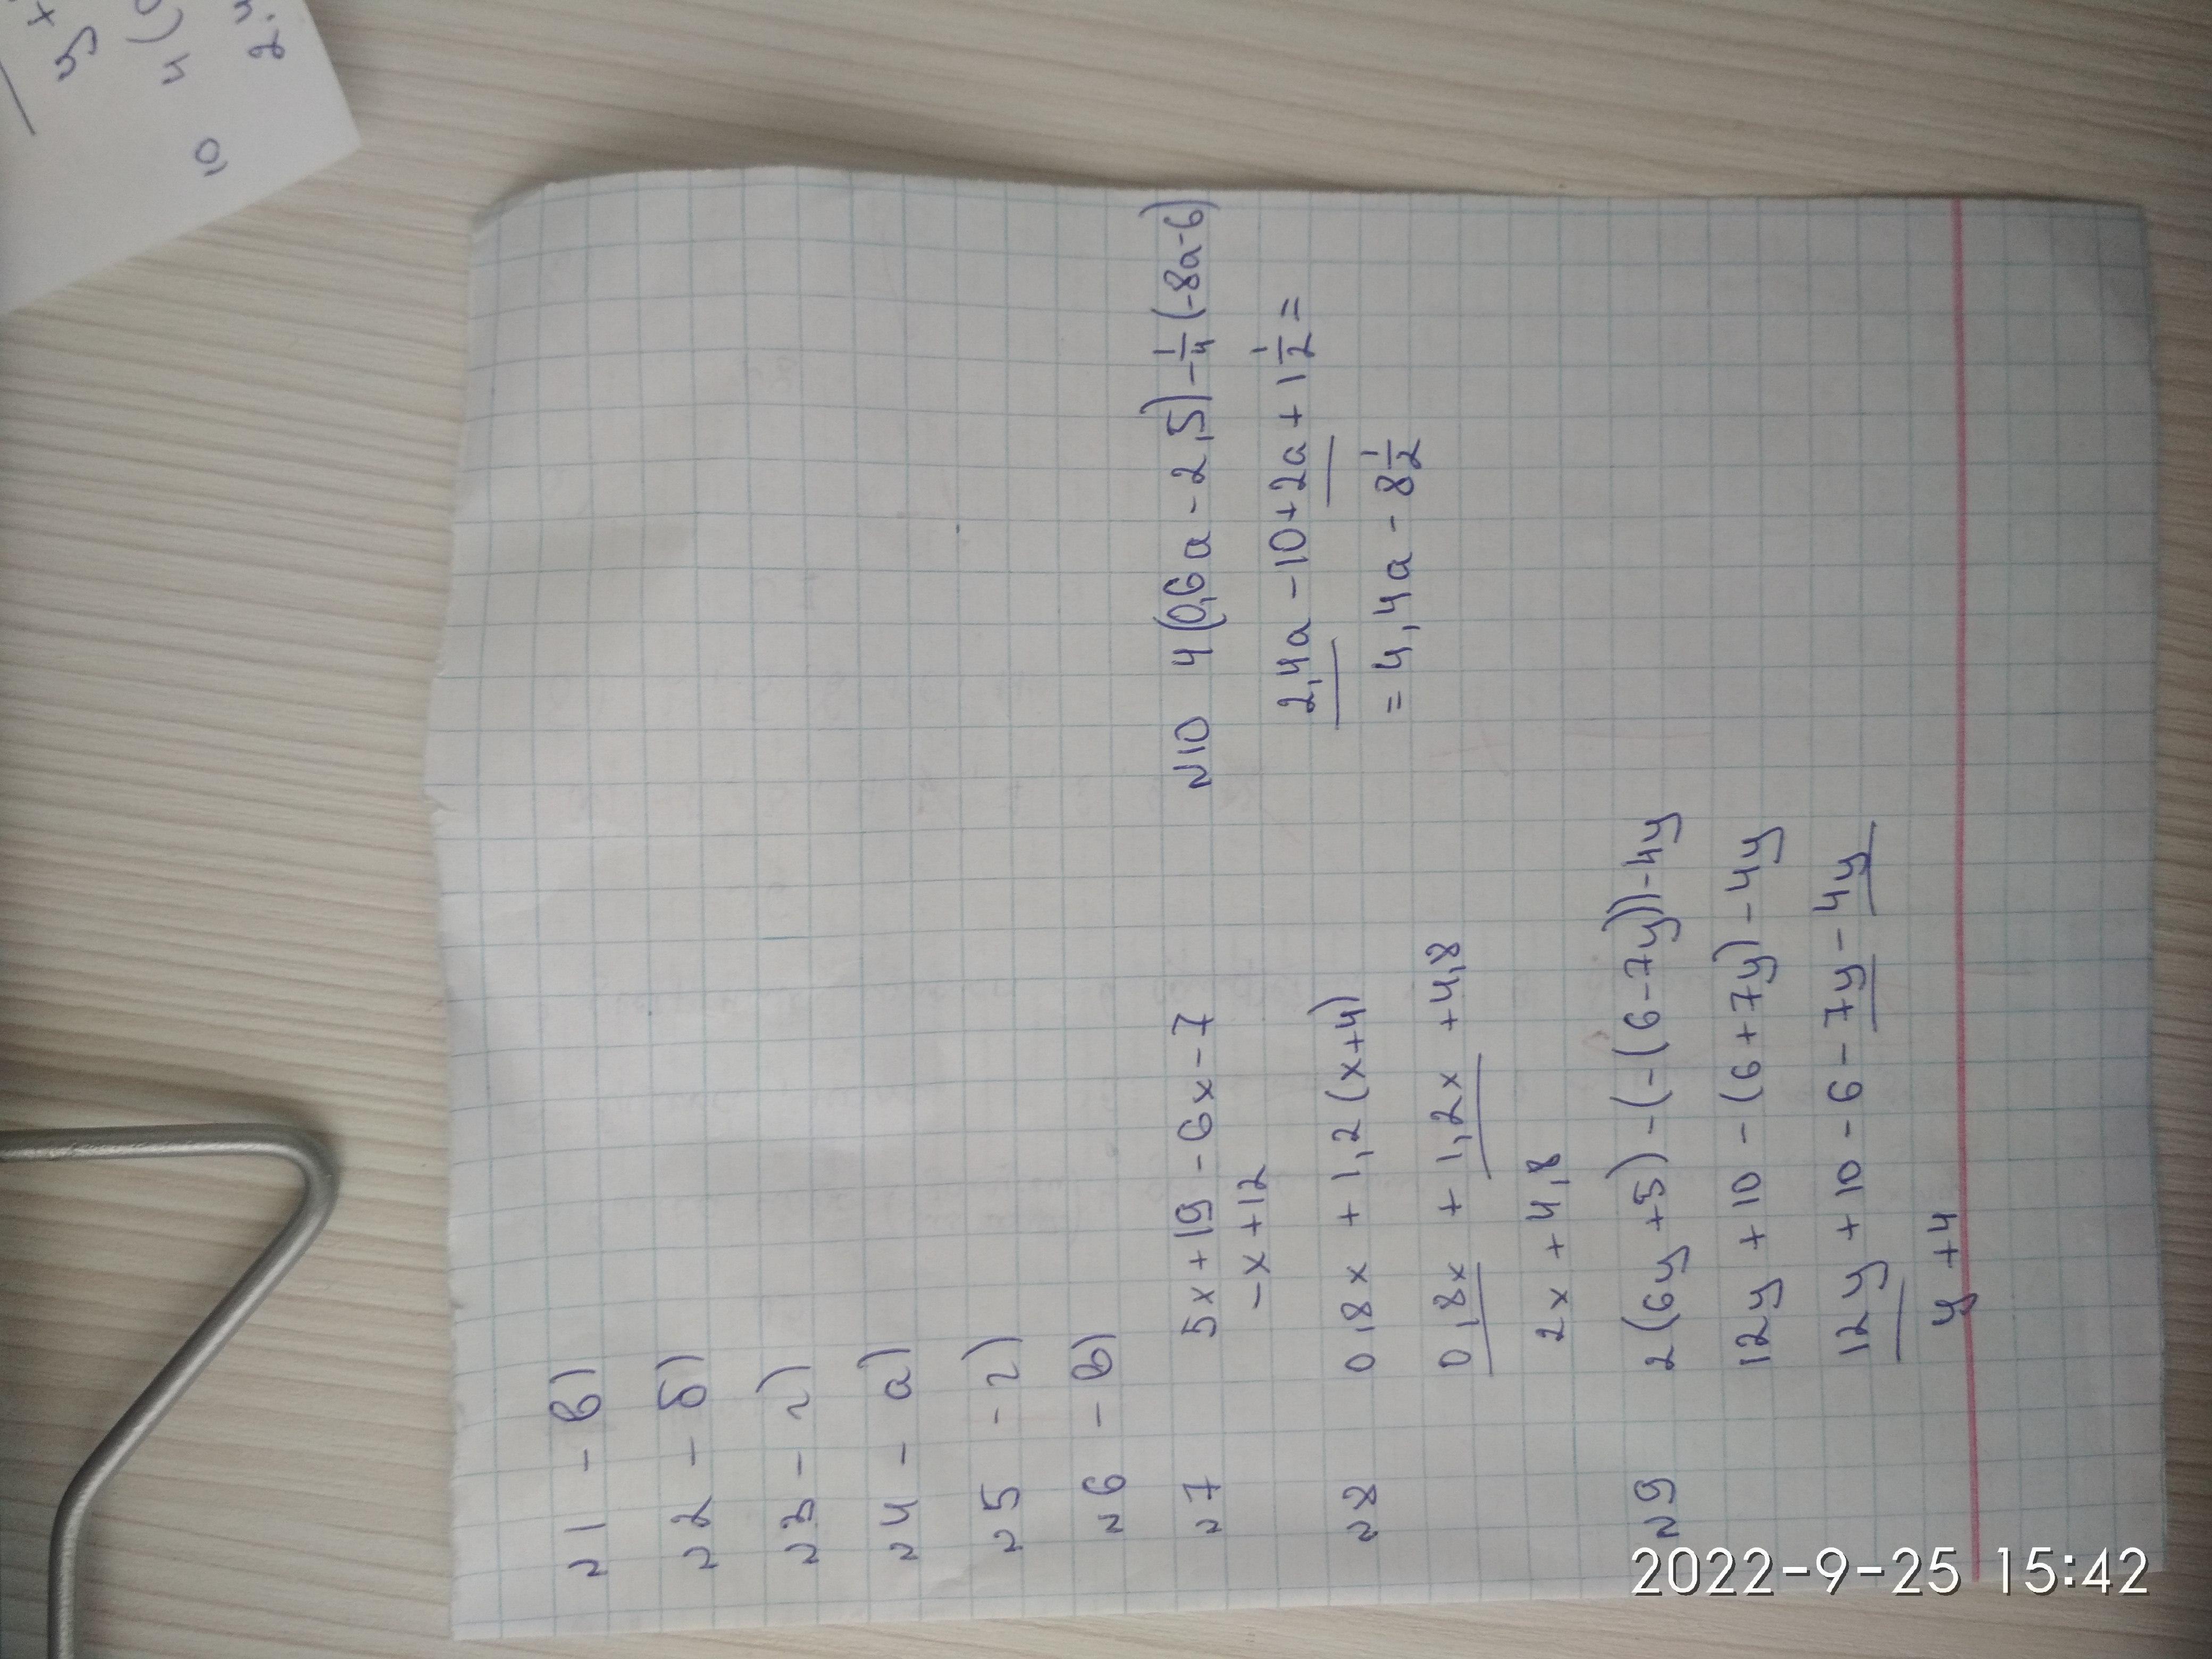 N1 - в)
N2 - б)
N3 - г)
N4 - а)
N5 - г)
N6 - в)
N7 5x+19-6x-7
-x+12
N8 0,8x + 1,2(x+4)
0,8x + 1,2x +4,8
2x+4,8
N9 2(6y+5)-(-(6-7y))-4y
12y+10-(6+7y)-4y
12y+10-6-7y-4y
y+4
N10 4(0,6a-2,5)-1/4(-8a-6)
2,4a-10+2a+1 1/2=
=4,4a-8 1/2
2022-9-25 15:42